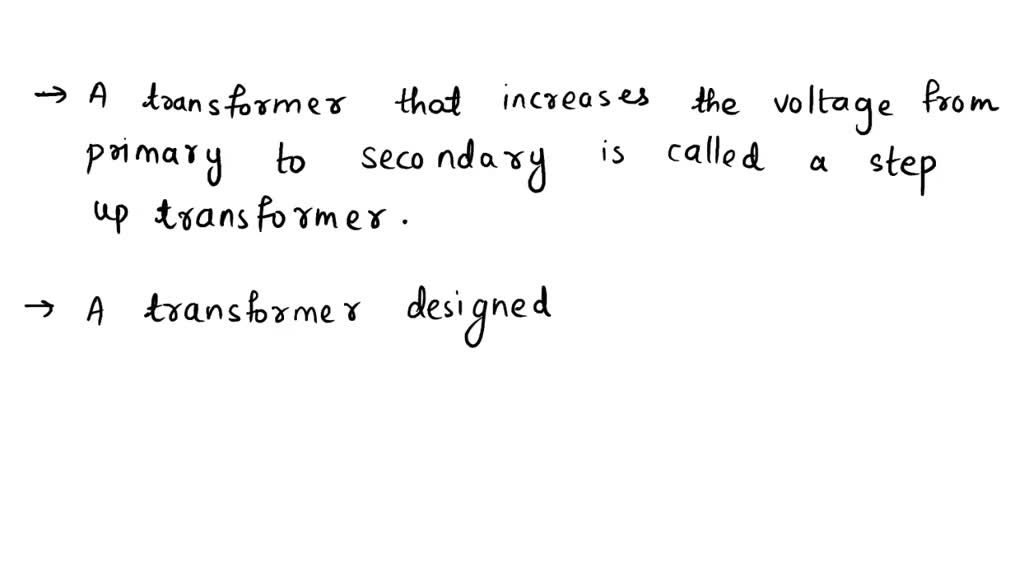 → A transformer that increases the voltage from
primary to secondary is called a step
up transformer.
→ A transformer designed